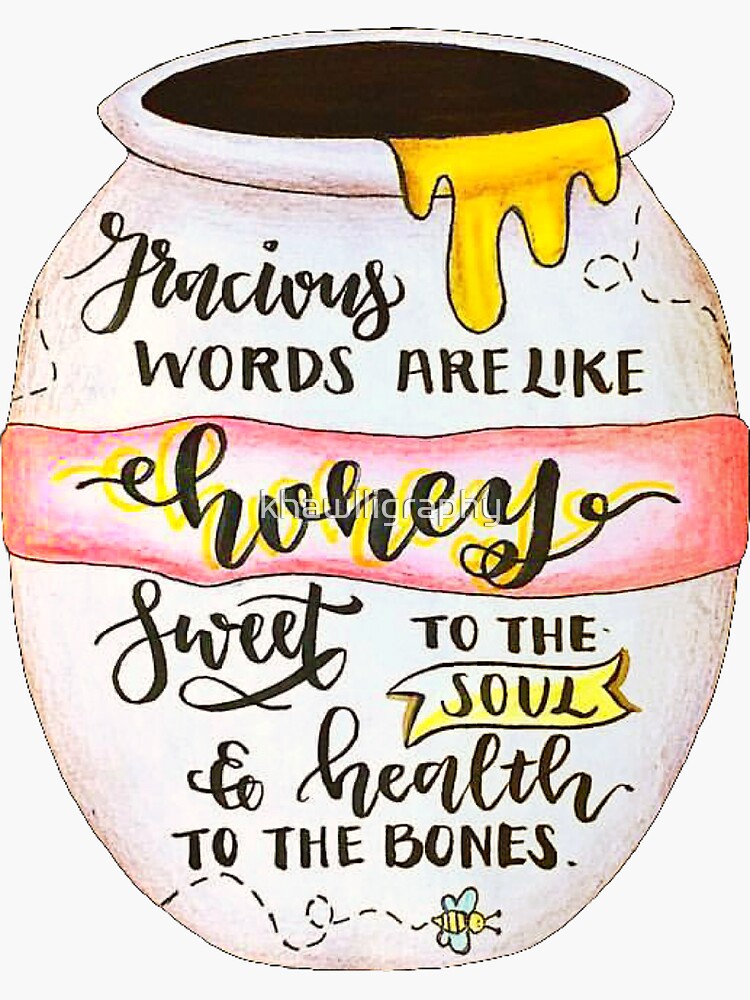 Gracious
WORDS ARE LIKE
honey
khawlligraphy
Sweet TO THE
SOUL
& health
TO THE BONES.